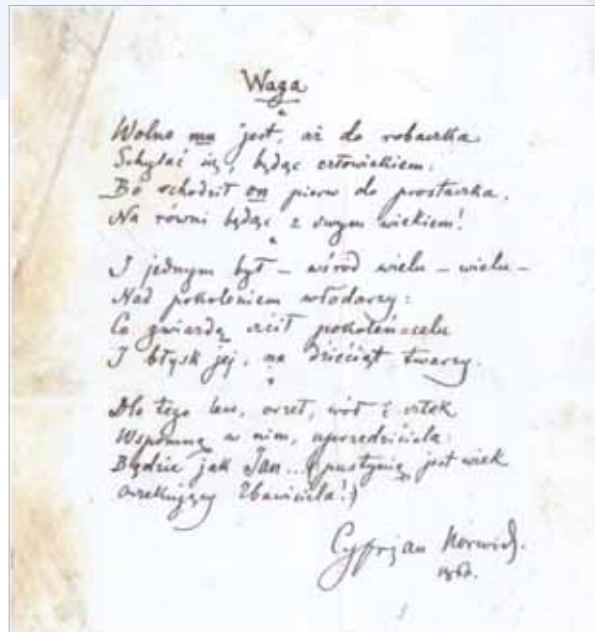 Waga
Wolno mu jest, aż do robaczka
Schylać się, będąc człowiekiem:
Bo schodził on pierw do prostaczka,
Na równi będąc z swym wiekiem!
I jednym był – wśród wielu – wielu –
Nad pokoleniem włodarzy:
Co gwiazdę czcił pokoleń-celu
I błysk jej, na dzieciąt twarzy.
Dla tego lew, orzeł, wół i człek
Wspomną w nim, uprzedziciela:
Będzie jak Jan... (pustynią jest wiek
Oczekujący Zbawiciela!)
Cyprjan Norwid.